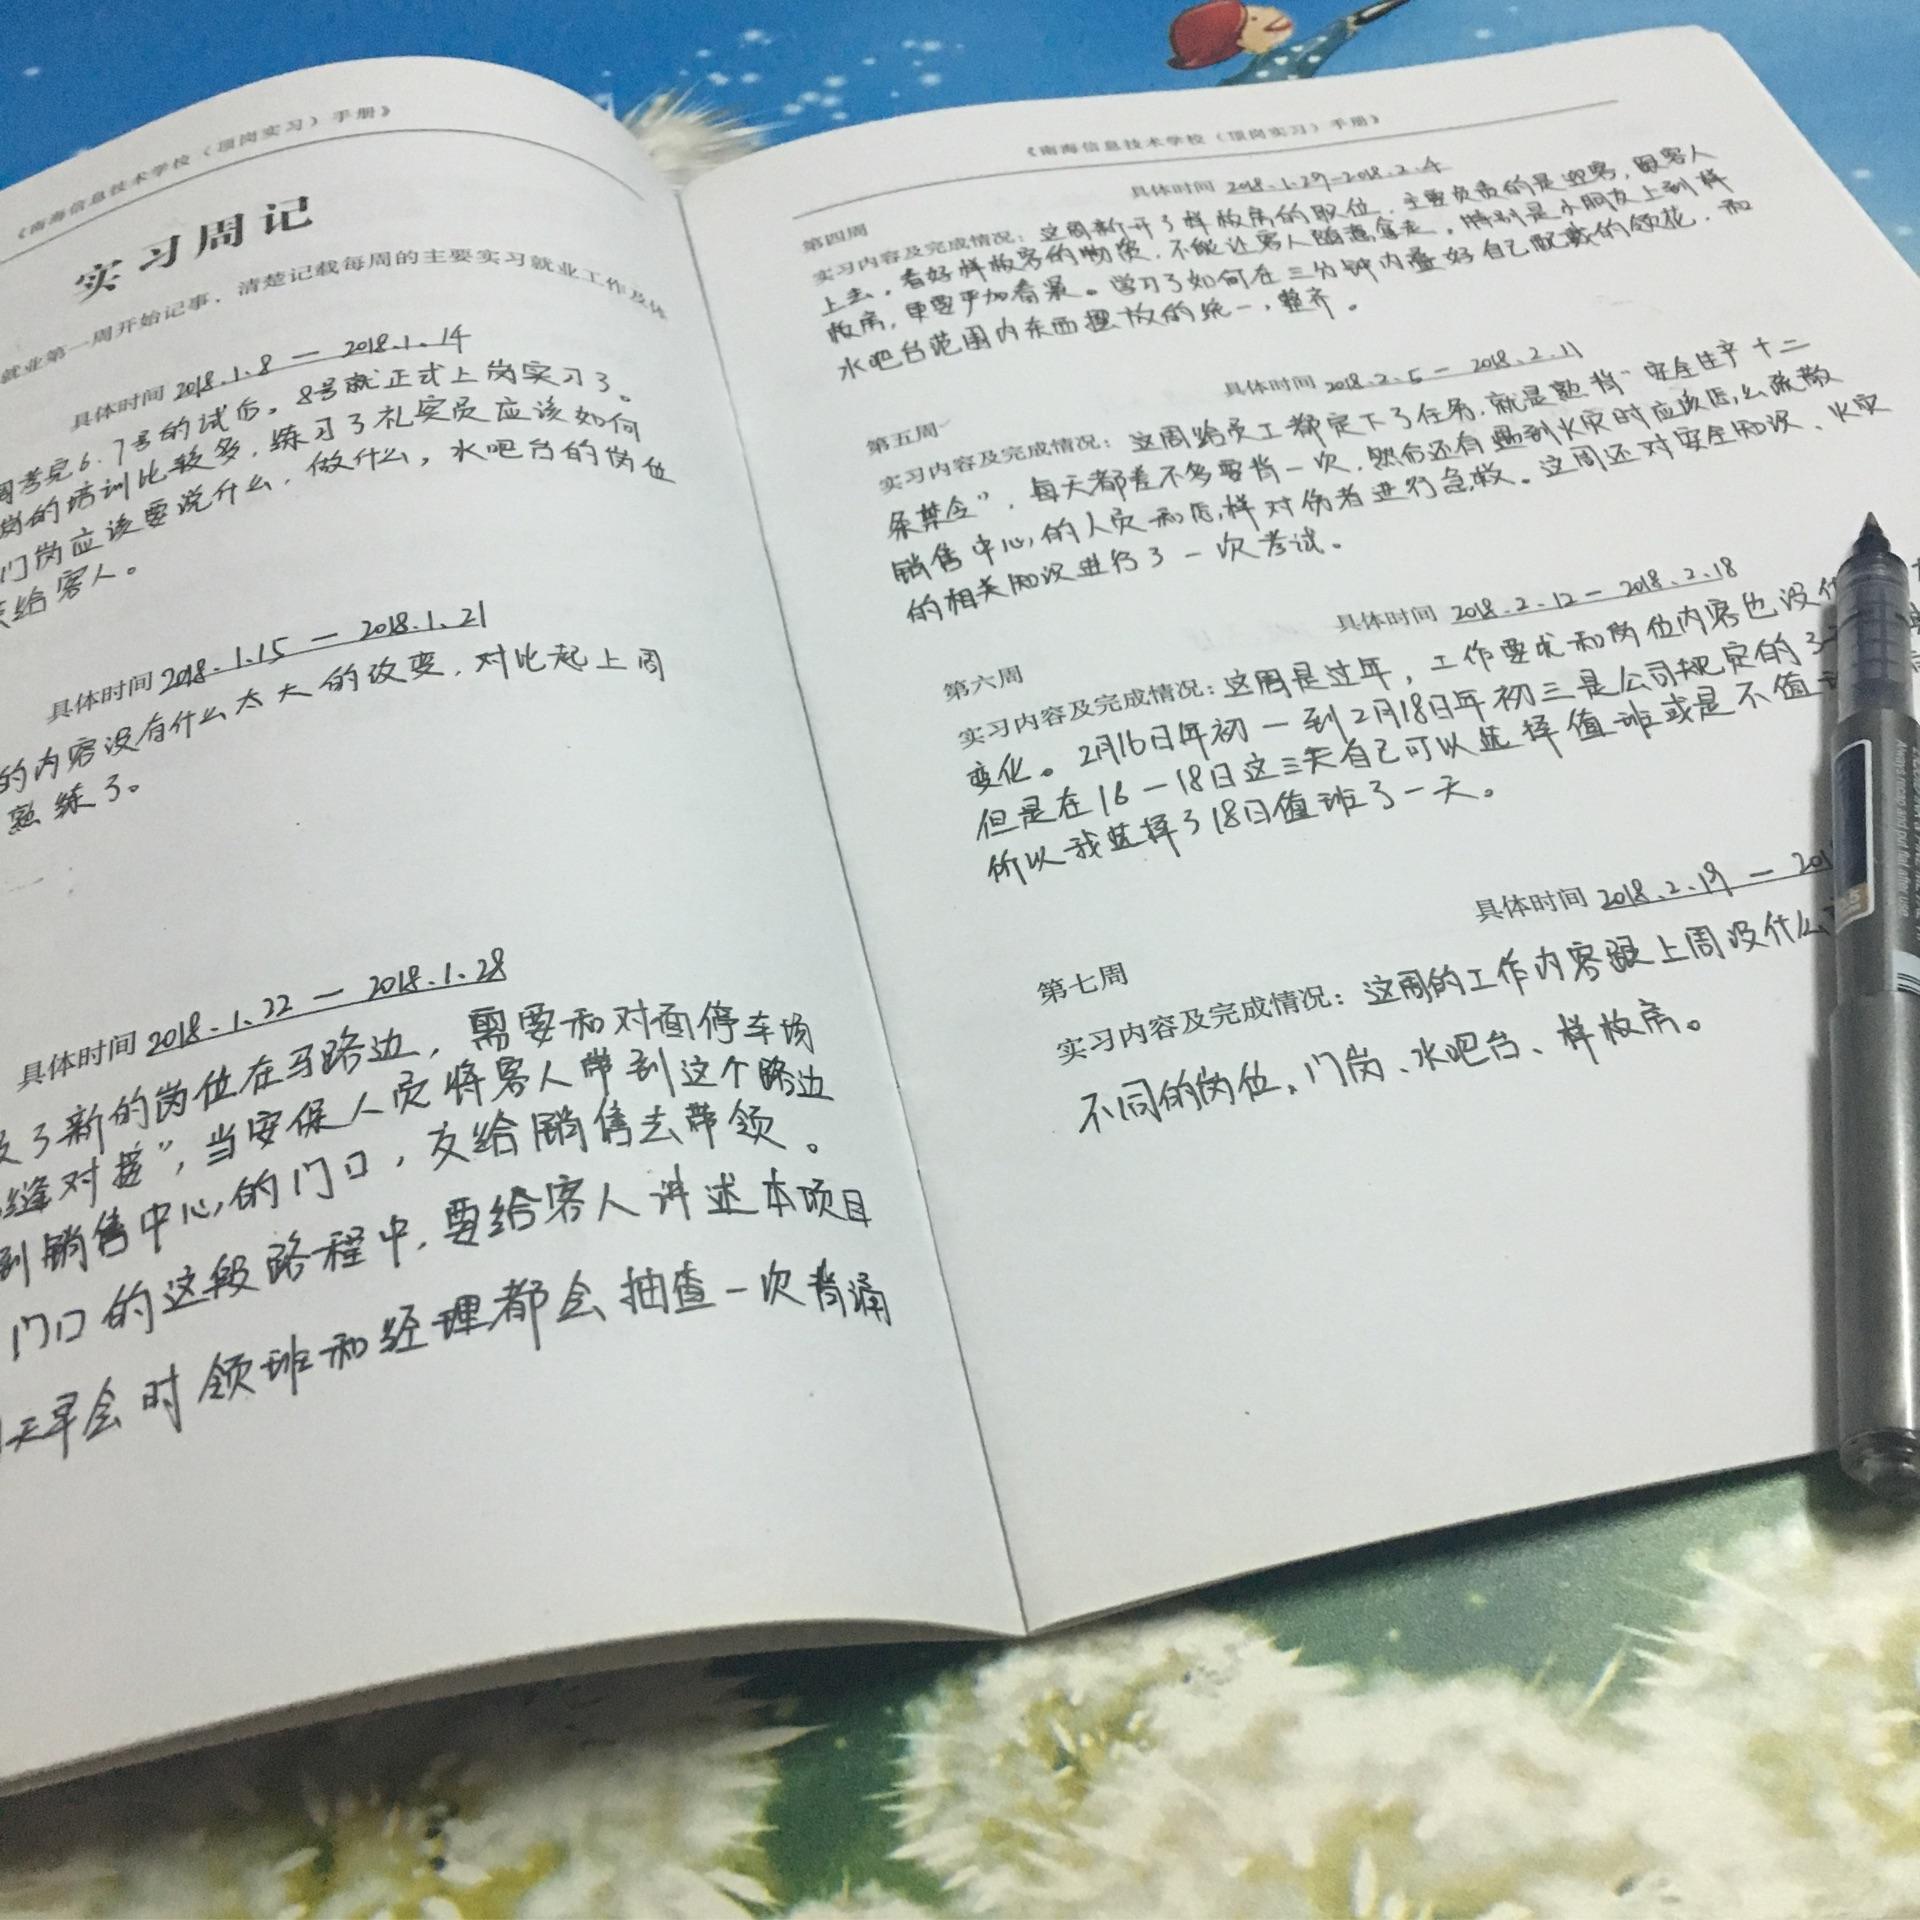 《南海信息技术学校（顶岗实习）手册》
实习周记
就业第一周开始记事，清楚记载每周的主要实习就业工作及体
具体时间 2018.1.8 — 2018.1.14
周考完6.7号的试后。8号就正式上岗实习了。
岗的培训比较多，练习了礼宾员应该如何
门岗应该要说什么，做什么，水吧台的岗位
给客人。
具体时间 2018.1.15 — 2018.1.21
的内容没有什么太大的改变，对比起上周
熟练了。
具体时间 2018.1.22 — 2018.1.28
了新的岗位在马路边，需要和对面停车场
缝对接”，当安保人员将客人带到这个路边
到销售中心的门口，交给销售去带领。
门口的这段路程中，要给客人讲述本项目
天早会时领班和经理都会抽查一次背诵
《南海信息技术学校（顶岗实习）手册》
具体时间 2018.1.29—2018.2.4
第四周
实习内容及完成情况：这周新开了样板房的职位，主要负责的是迎客，跟客人
上去，看好样板房的物资，不能让客人随意拿走，特别是小朋友上到样
板房，更要严加看紧。学习了如何在三分钟内叠好自己配戴的领花，和
水吧台范围内东西摆放的统一，整齐。
具体时间 2018.2.5 — 2018.2.11
第五周
实习内容及完成情况：这周给员工都定下了任务，就是熟背“安全生产十二
条禁令”，每天都差不多要背一次，然后还有遇到火灾时应该怎么疏散
销售中心的人员和怎样对伤者进行急救。这周还对安全知识、火灾
的相关知识进行了一次考试。
具体时间 2018.2.12 — 2018.2.18
第六周
实习内容及完成情况：这周是过年，工作要求和岗位内容也没什
变化。2月16日年初一到2月18日年初三是公司规定的3
但是在16—18日这三天自己可以选择值班或是不值
所以我选择了18日值班了一天。
具体时间 2018.2.19 — 201
第七周
实习内容及完成情况：这周的工作内容跟上周没什么
不同的岗位、门岗、水吧台、样板房。